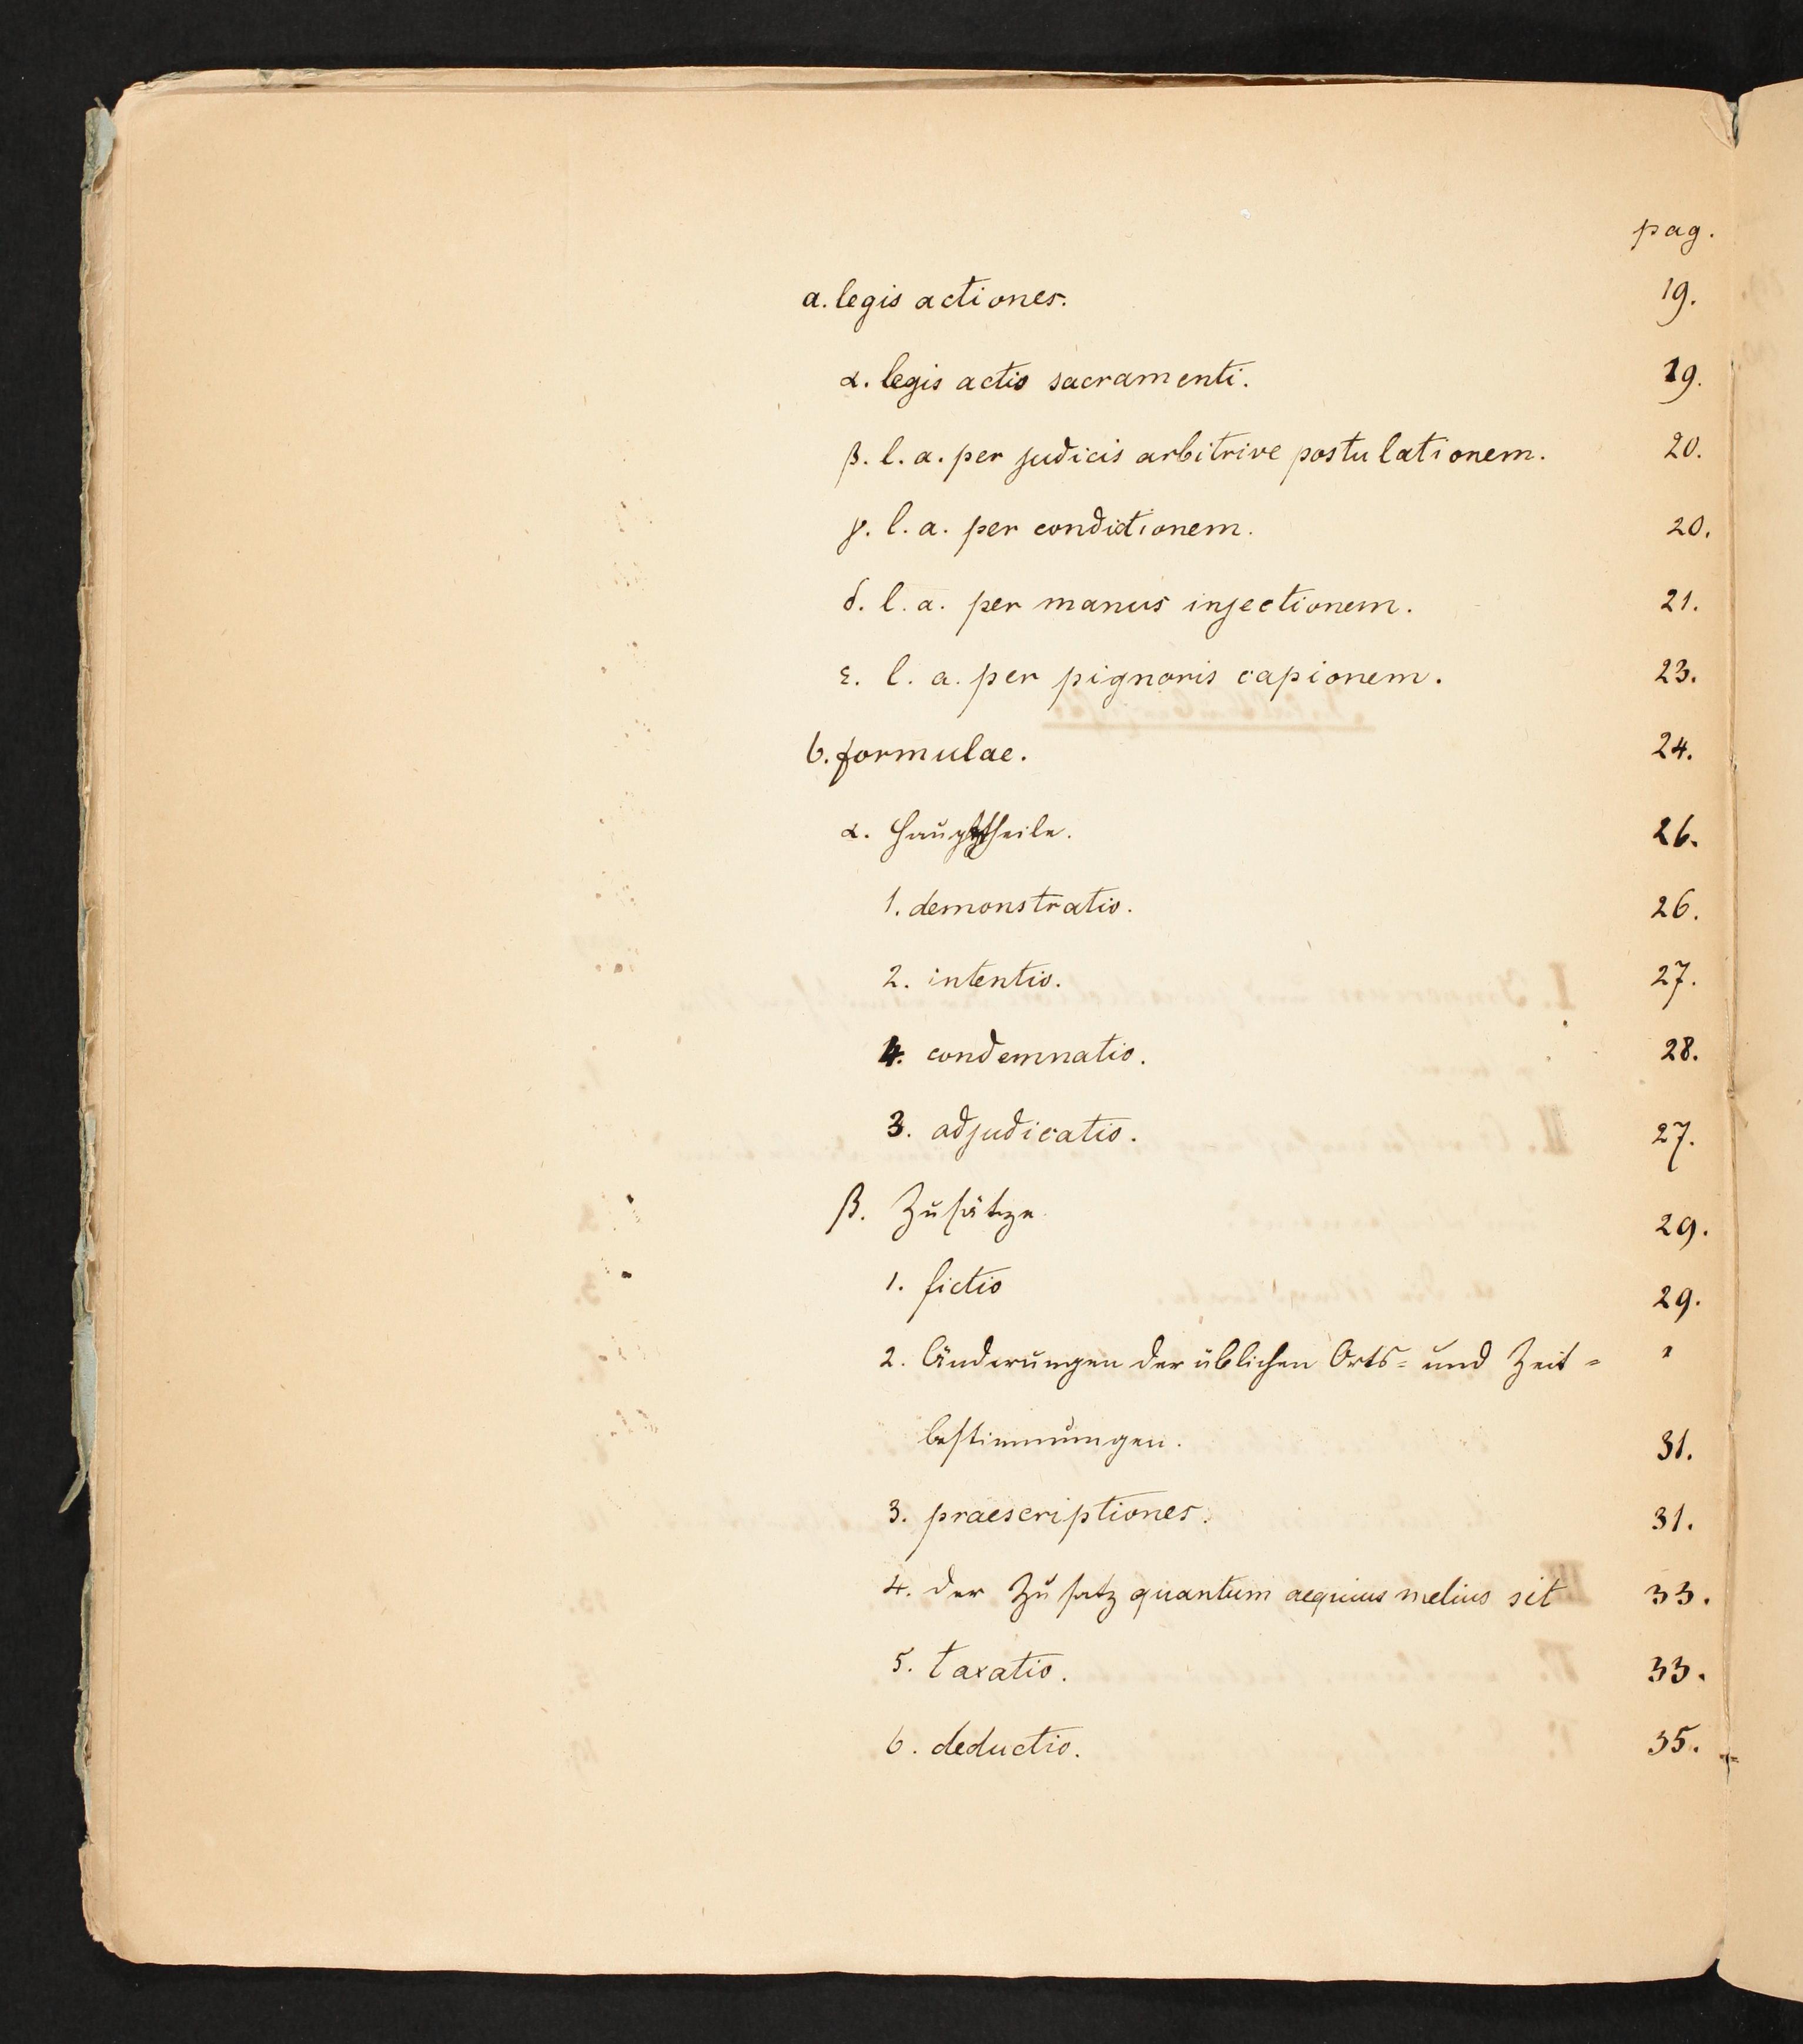 pag.
a. legis actiones. 19.
α. legis actio sacramenti. 19.
β. l. a. per judicis arbitrive postulationem. 20.
γ. l. a. per condictionem. 20.
δ. l. a. per manus injectionem. 21.
ε. l. a. per pignoris capionem. 23.
b. formulae. 24.
α. Haupttheile. 26.
1. demonstratio. 26.
2. intentio. 27.
4. condemnatio. 28.
3. adjudicatio. 27.
β. Zusätze 29.
1. fictio 29.
2. Änderungen der üblichen Orts= und Zeit=
bestimmungen. 31.
3. praescriptiones. 31.
4. der Zusatz quantum aequius melius sit 33.
5. taxatio. 33.
6. deductio. 35.